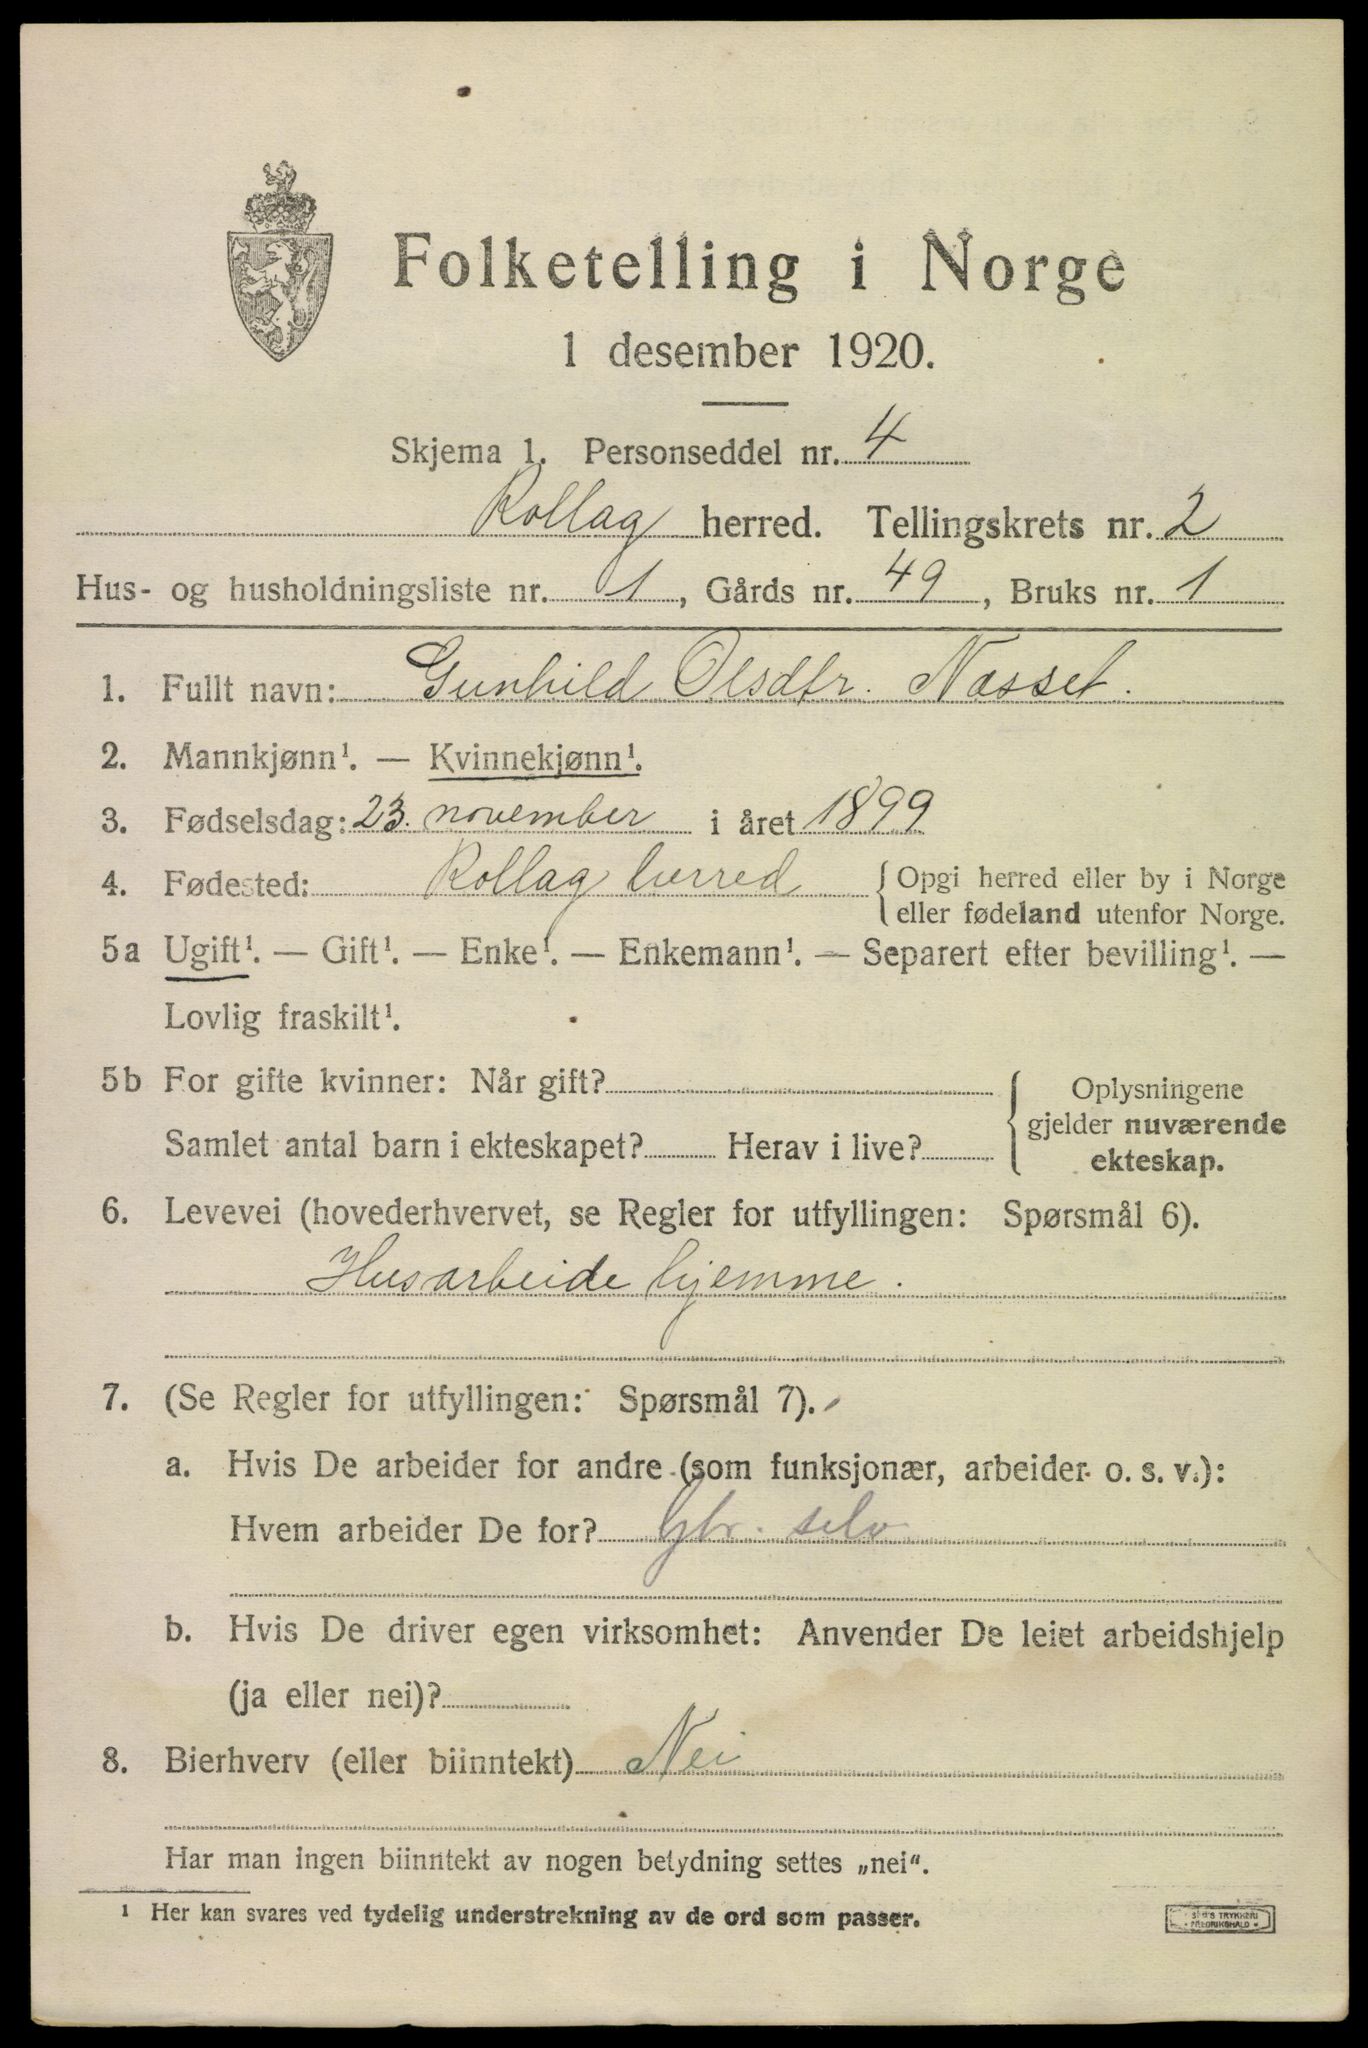 Folketelling i Norge
1 desember 1920.
Skjema 1. Personseddel nr. 4
Rollag herred. Tellingskrets nr. 2
Hus- og husholdningsliste nr. 1, Gårds nr. 49, Bruks nr. 1
1. Fullt navn: Gunhild Olsdtr. Næsset.
2. Mannkjønn¹. — Kvinnekjønn¹.
3. Fødselsdag: 23. november i året 1899
4. Fødested: Rollag herred { Opgi herred eller by i Norge
eller fødeland utenfor Norge.
5a Ugift¹. — Gift¹. — Enke¹. — Enkemann¹. — Separert efter bevilling¹. —
Lovlig fraskilt¹.
5b For gifte kvinner: Når gift?
Samlet antal barn i ekteskapet? Herav i live?
{ Oplysningene
gjelder nuværende
ekteskap.
6. Levevei (hovederhvervet, se Regler for utfyllingen: Spørsmål 6).
Husarbeide hjemme.
7. (Se Regler for utfyllingen: Spørsmål 7).
a. Hvis De arbeider for andre (som funksjonær, arbeider o. s. v.):
Hvem arbeider De for? Gbr. selv
b. Hvis De driver egen virksomhet: Anvender De leiet arbeidshjelp
(ja eller nei)?
8. Bierhverv (eller biinntekt) Nei
Har man ingen biinntekt av nogen betydning settes „nei“.
¹ Her kan svares ved tydelig understrekning av de ord som passer.
TRYKKERI
FREDRIKSHALD